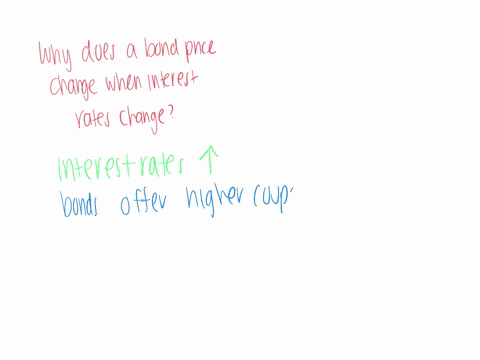 Why does a bond price
change when interest
rates change?
interest rates ↑
bonds offer higher coup